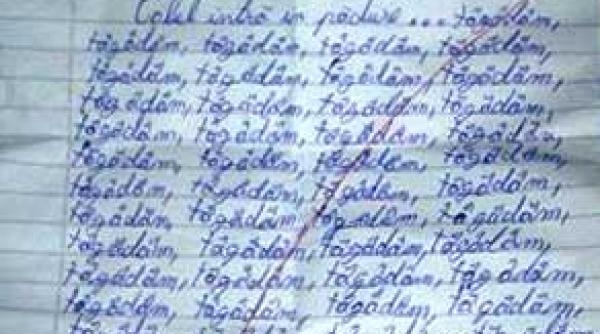 Calul intră în pădure ... tăgădăm,
tăgădăm, tăgădăm, tăgădăm, tăgădăm,
tăgădăm, tăgădăm, tăgădăm, tăgădăm,
tăgădăm, tăgădăm, tăgădăm, tăgădăm,
tăgădăm, tăgădăm, tăgădăm, tăgădăm,
tăgădăm, tăgădăm, tăgădăm, tăgădăm,
tăgădăm, tăgădăm, tăgădăm, tăgădăm,
tăgădăm, tăgădăm, tăgădăm, tăgădăm,
tăgădăm, tăgădăm, tăgădăm, tăgădăm,
tăgădăm, tăgădăm, tăgădăm, tăgădăm,
tăgădăm, tăgădăm, tăgădăm, tăgădăm,